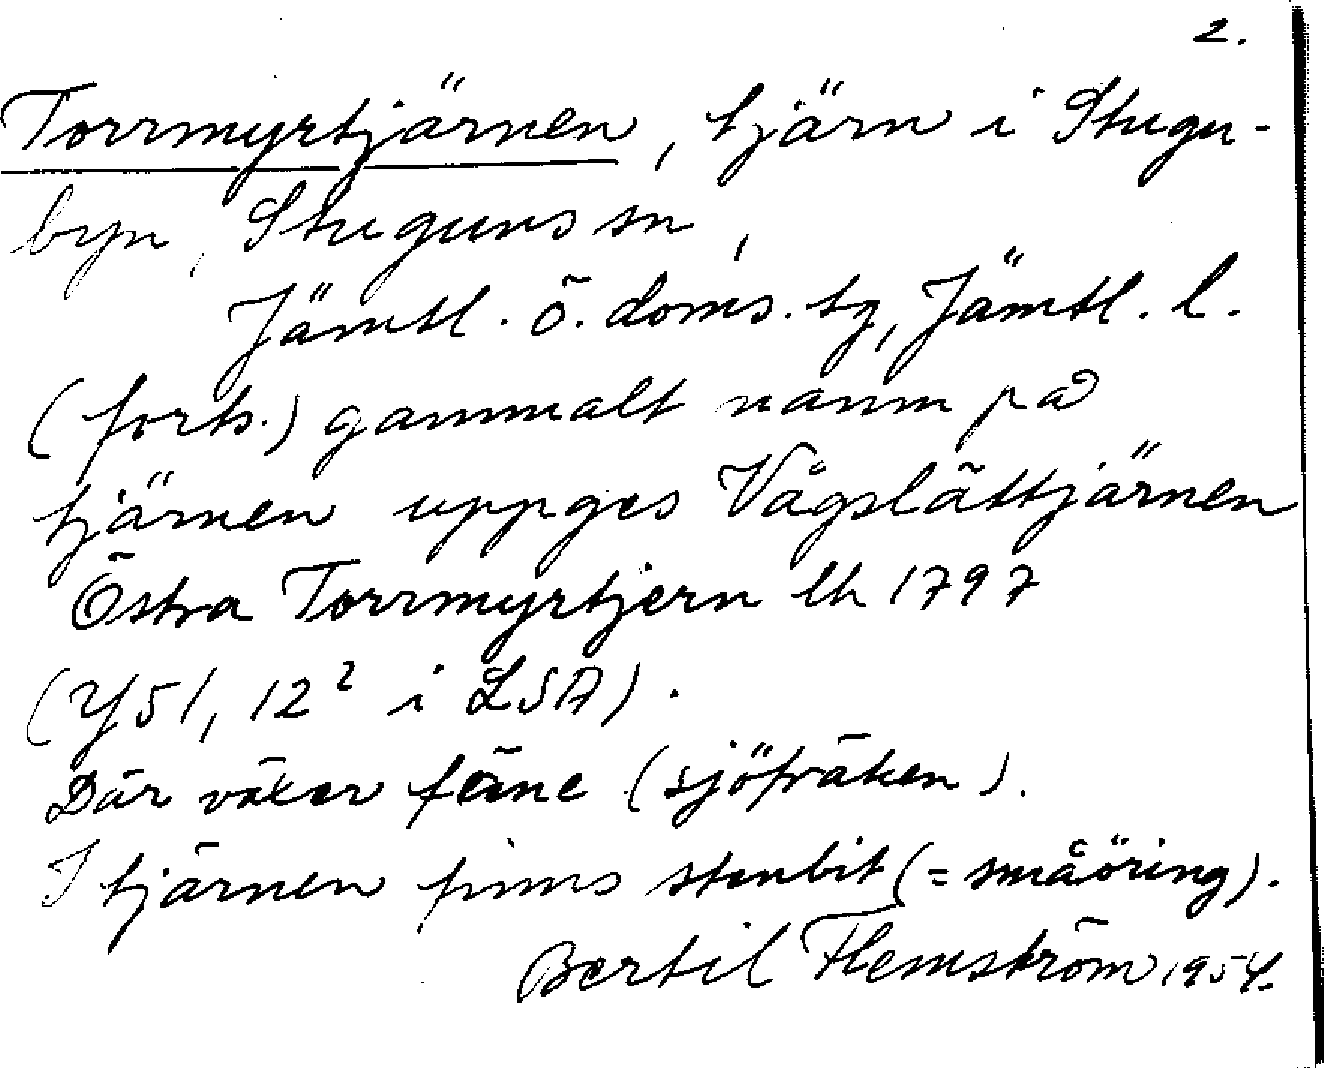 2.
Torrmyrtjärnen, tjärn i Stugu-
byn, Stuguns sn,
Jämtl. ö. doms. tg, Jämtl. l.
(forts.) gammalt namn på
tjärnen uppges Vågslättjärnen
Östra Torrmyrtjern lh 1797
(Y51, 12² i LSA).
Där växer fäne (sjöfräken).
I tjärnen finns stenbit (= småöring).
Bertil Flemström 1954.